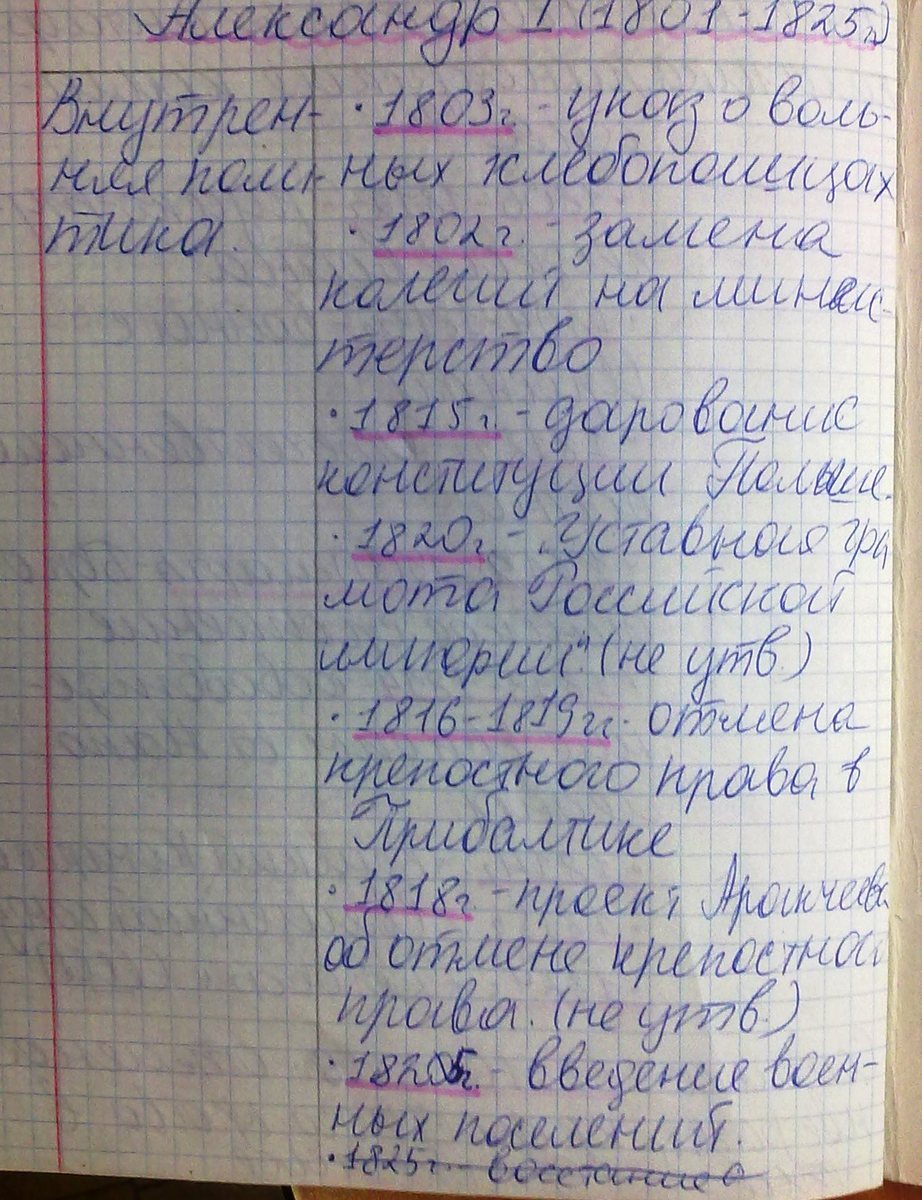 Александр I (1801-1825г.)
Внутрен-
няя поли-
тика.
· 1803г. - указ о воль-
ных хлебопашцах
· 1802г. - замена
колегий на минис-
терство
· 1815г. - дарование
конституции Польше.
· 1820г. - "Уставная гра
мота Российской
империи" (не утв.)
· 1816-1819гг. отмена
крепостного права в
Прибалтике
· 1818г. - проект Аракчеева
об отмене крепостного
права. (не утв.)
· 1825г. - введение воен-
ных поселений.
· 1825г. - восстание в